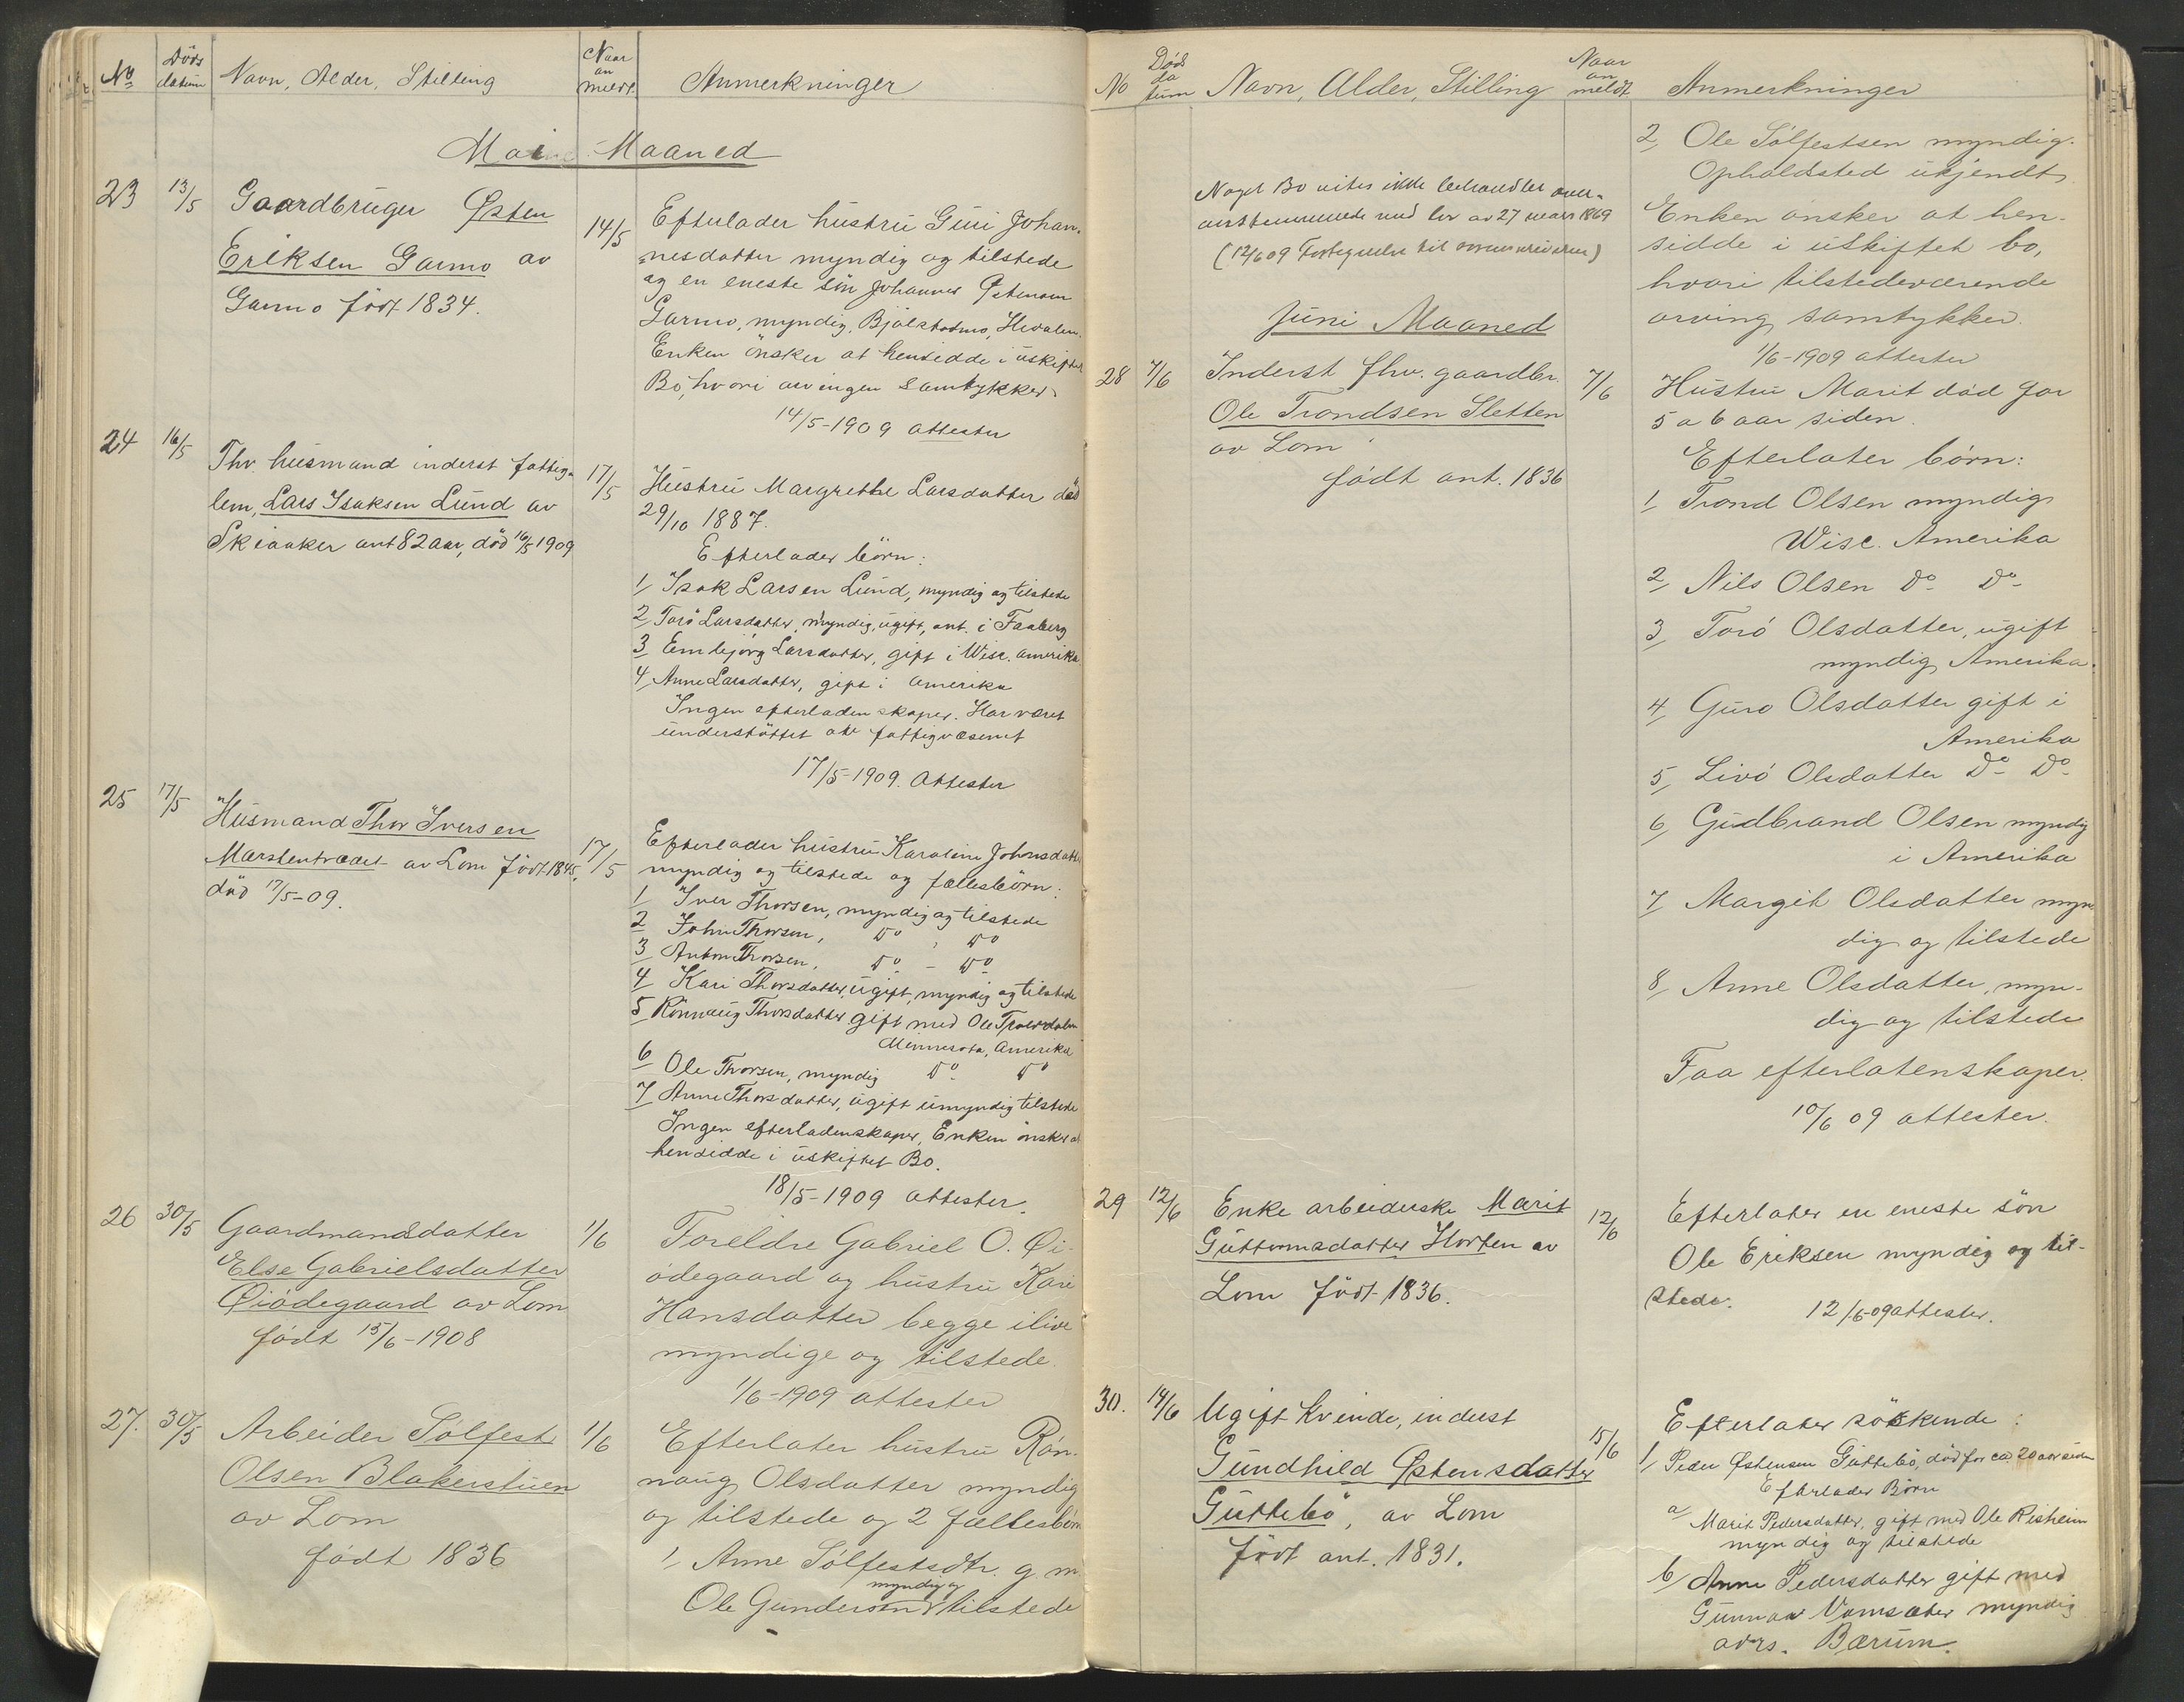 No Döds datum Navn, Alder, Stilling Naar an meldt. Anmerkninger
Mai Maaned
23 13/5 Gaardbruger Østen
Eriksen Garmo av
Garmo födt 1834.
14/5 Efterlader hustru Guri Johan-
nesdatter myndig og tilstede
og en eneste sön Johannes Østensen
Garmo, myndig,
Enken önsker at hensidde i uskiftet
Bo, hvori arvingen samtykker.
14/5-1909 attester
24 16/5 Fhv. husmand inderst fattig-
lem, Lars Isaksen Lund av
Skiaaker ant 82 aar, död 16/5 1909
17/5 Hustru Margrethe Larsdatter död
29/10 1887.
Efterlader börn:
1/ Isak Larsen Lund, myndig og tilstede
2/ Toró Larsdatter, myndig, ugift, ant. i Faaberg
3 Embjörg Larsdatter, gift i Wisc. Amerika
4/ Anne Larsdatter, gift i Amerika
Ingen efterladenskaper. Har været
understöttet av fattigvæsenet
17/5-1909. Attester
25 17/5 Husmand Thor Iversen
Marstentrædet av Lom födt 1845,
död 17/5-09.
17/5 Efterlader hustru Karoline Johnsdatter
myndig og tilstede og fællesbörn:
1 Iver Thorsen, myndig og tilstede
2 John Thorsen, Do , Do
3 Anton Thorsen, Do - Do
4 Kari Thorsdatter, ugift, myndig og tilstede
5 Rönnaug Thorsdatter gift med Ole
Minnesota, Amerika
6 Ole Thorsen, myndig Do Do
7 Anne Thorsdatter, ugift umyndig tilstede
Ingen efterladenskaper, Enken önsker at
hensidde i uskiftet Bo.
18/5-1909 attester.
26 30/5 Gaardmandsdatter
Else Gabrielsdatter
Øiódegaard av Lom
födt 15/6-1908
1/6 Foreldre Gabriel O. Øi-
ódegaard og hustru Kari
Hansdatter begge ilive
myndige og tilstede.
1/6-1909 attester
27. 30/5 Arbeider Sólfest
Olsen Blakerstuen
av Lom
födt 1836
1/6 Efterlater hustru Rón-
naug Olsdatter myndig
og tilstede og 2 fællesbörn
1/ Anne Sólfestsdtr. g. m.
myndig og
Ole Gundersen tilstede
No Döds da tum Navn, Alder, Stilling Naar an meldt. Anmerkninger
Noget Bo vites ikke behandlet over-
ensstemmende med lov av 27 mars 1869
(12/6 09 Fortegnelse til sorenskriveren)
2/ Ole Sólfestsen myndig.
Opholdssted ukjendt,
Enken ónsker at hen-
sidde i uskiftet bo,
hvori tilstedeværende
arving samtykker.
1/6-1909 attester
Juni Maaned
28 7/6 Inderst fhv. gaardbr.
Ole Trondsen Sletten
av Lom
födt ant. 1836
7/6 Hustru Marit död for
5 a 6 aar siden.
Efterlater börn:
1/ Trond Olsen myndig
Wisc. Amerika
2/ Nils Olsen Do Do
3/ Toró Olsdatter, ugift
myndig Amerika.
4/ Guro Olsdatter gift i
Amerika
5/ Livó Olsdatter Do Do
6/ Gudbrand Olsen myndig
i Amerika
7/ Margit Olsdatter myn-
dig og tilstede
8/ Anne Olsdatter, myn-
dig og tilstede
Faa efterlatenskaper.
10/6 09 attester.
29 12/6 Enke arbeiderske Marit
Guttormsdatter Horten av
Lom födt 1836.
12/6 Efterlater en eneste sön
Ole Eriksen myndig og til-
stede.
12/6-09 attester.
30. 14/6 Ugift kvinde, inderst
Gundhild Østensdatter
Guttebö, av Lom
födt ant. 1831.
15/6 Efterlater söskende:
1/ Peder Østensen Guttebö, död for ca 20 aar siden
Efterlader Börn
a/ Marit Pedersdatter, gift med Ole Risheim
myndig og tilstede
b/ Anne Pedersdatter gift med
Gunnar myndig
adrs. Bærum.